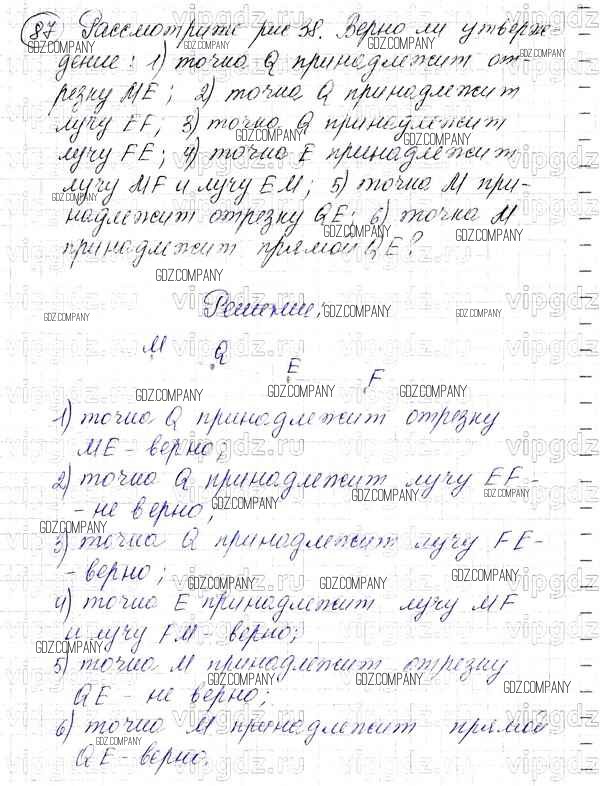 87 Рассмотрите рис 38. Верно ли утверж-
дение: 1) точка Q принадлежит от-
резку ME; 2) точка Q принадлежит
лучу EF; 3) точка Q принадлежит
лучу FE; 4) точка E принадлежит
лучу MF и лучу EM; 5) точка M при-
надлежит отрезку QE; 6) точка M
принадлежит прямой QE?
Решение:
M Q E F
1) точка Q принадлежит отрезку
ME - верно;
2) точка Q принадлежит лучу EF -
- не верно;
3) точка Q принадлежит лучу FE -
- верно;
4) точка E принадлежит лучу MF
и лучу FM - верно;
5) точка M принадлежит отрезку
QE - не верно;
6) точка M принадлежит прямой
QE - верно.
GDZ.COMPANY
vipgdz.ru